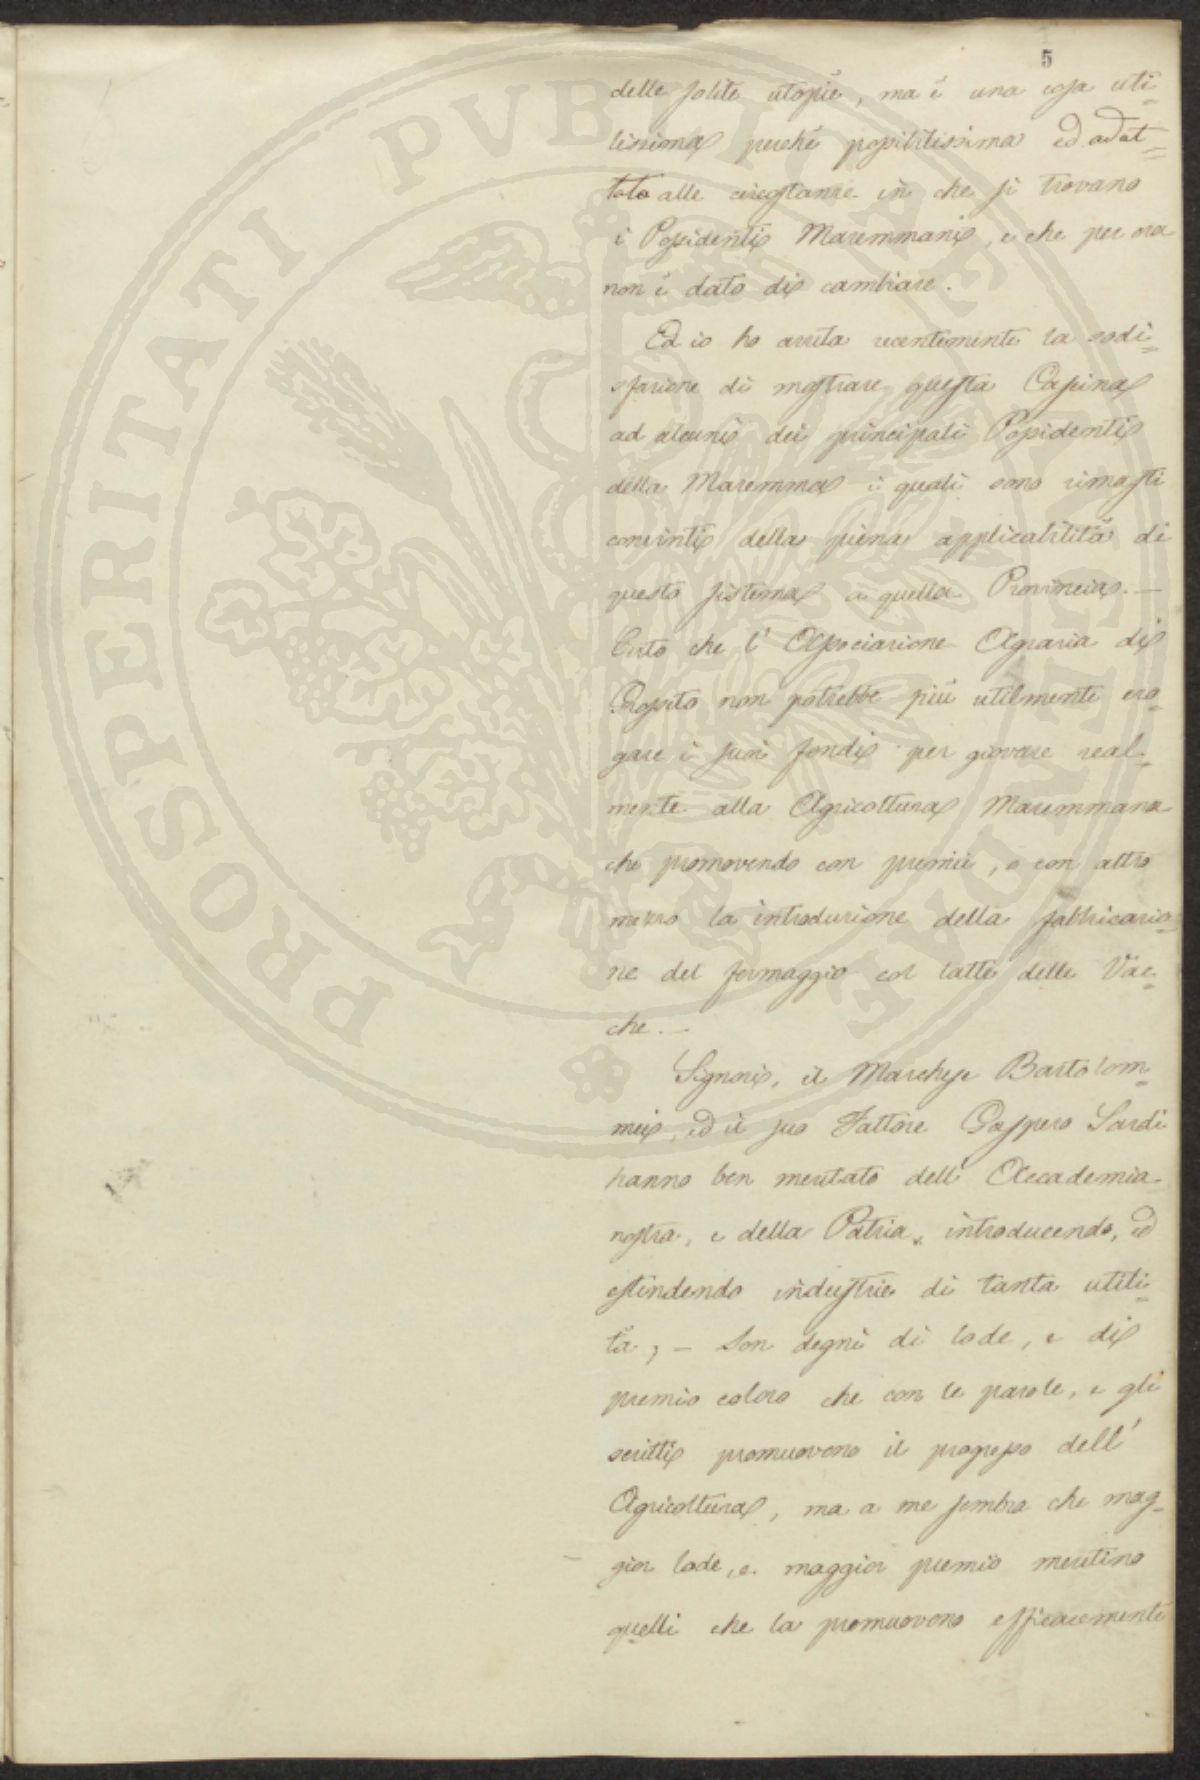 5
delle solite utopie, ma è una cosa uti=
lissima perchè possibilissima ed adat=
tata alle circostanze in che si trovano
i Possidenti Maremmani, e che per ora
non è dato di cambiare.
Ed io ho avuta recentemente la sodi=
sfazione di mostrare questa Cascina
ad alcuni dei principali Possidenti
della Maremma i quali sono rimasti
convinti della piena applicabilità di
questo sistema a quella Provincia. —
Certo che l' Associazione Agraria di
Grosseto non potrebbe più utilmente ero=
gare i suoi fondi per giovare real=
mente alla Agricoltura Maremmana
che promovendo con premii, o con altro
mezzo la introduzione della fabbricazio=
ne del formaggio col latte delle Vac=
che. —
Signori, il Marchese Bartolom=
mei, ed il suo Fattore Gaspero Sardi
hanno ben meritato dell' Accademia
nostra, e della Patria, introducendo, ed
estendendo industrie di tanta utili=
tà; — Son degni di lode, e di
premio coloro che con le parole, e gli
scritti promuovono il progresso dell'
Agricoltura, ma a me sembra che mag=
gior lode, e maggior premio meritino
quelli che la promuovono efficacemente
PROSPERITATI PVBLICAE AVGENDAE